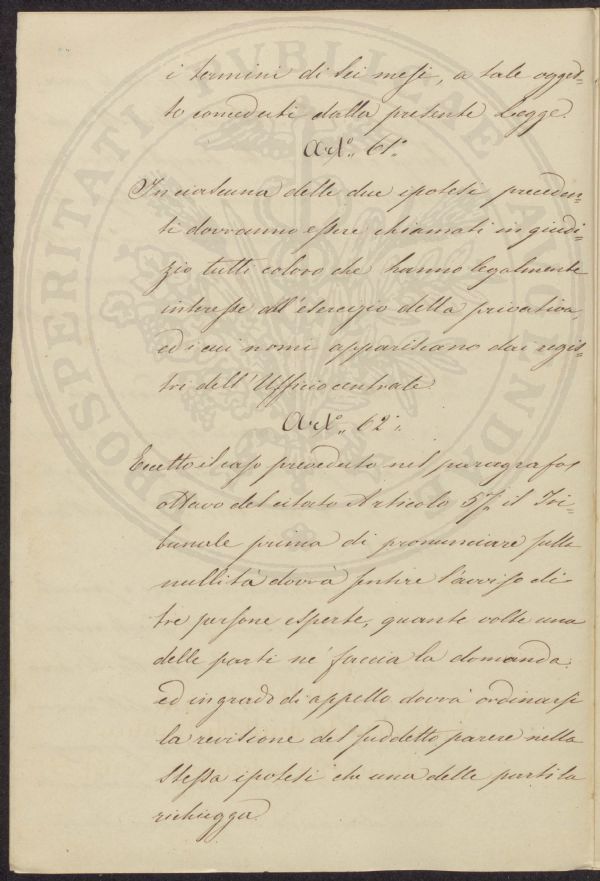 i termini di sei mesi, a tale ogget=
to conceduti dalla presente Legge.
Art.° 61°
In ciascuna delle due ipotesi preceden=
ti dovranno essere chiamati in giudi=
zio tutti coloro che hanno legalmente
interesse all'esercizio della privativa,
ed i cui nomi appariscano dai regis=
tri dell'Ufficio centrale.
Art.° 62°
Eccetto il caso preveduto nel paragrafo
ottavo del citato Articolo 57, il Tri=
bunale prima di pronunciare sulla
nullità dovrà sentire l'avviso di
tre persone esperte, quante volte una
delle parti ne faccia la domanda:
ed in grado di appello dovrà ordinarsi
la revisione del suddetto parere nella
stessa ipotesi che una delle parti la
richiegga.
PROSPERITATI PUBLICAE AUGENDAE